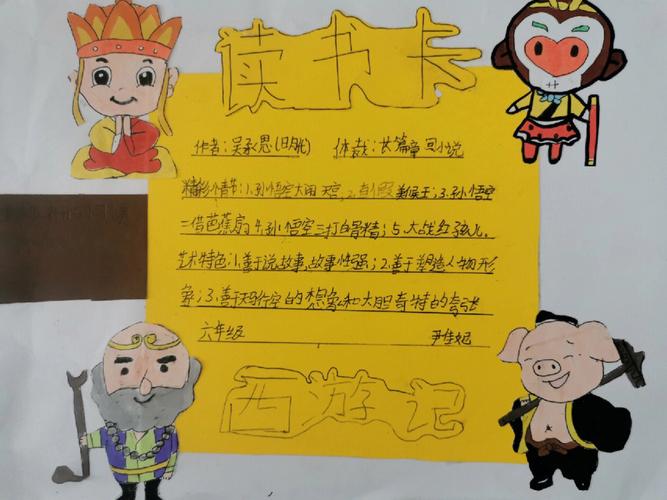 读书卡
作者:吴承恩(明代) 体裁:长篇章回小说
精彩情节:1.孙悟空大闹天宫,2.真假美猴王;3.孙悟空
三借芭蕉扇4.孙悟空三打白骨精;5.大战红孩儿.
艺术特色:1.善于说故事,故事性强;2.善于塑造人物形
象;3.善于天马行空的想象和大胆奇特的夸张
六年级 尹佳妮
西游记